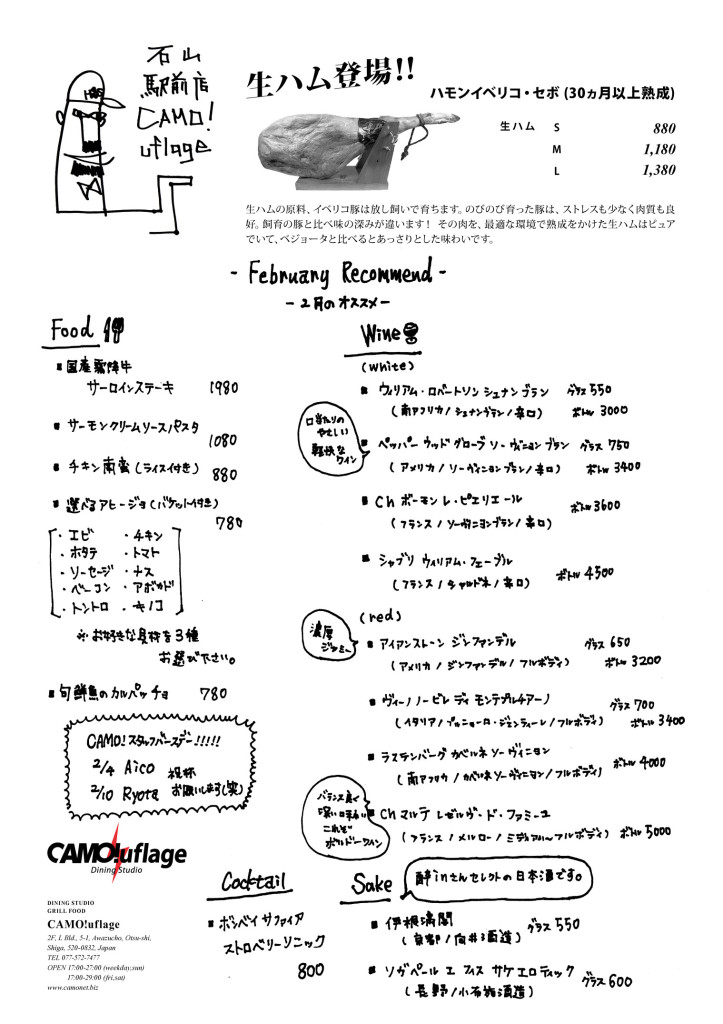 石山
駅前店
CAMO!
uflage
生ハム登場!!
ハモンイベリコ・セボ (30ヵ月以上熟成)
生ハム S 880
M 1,180
L 1,380
生ハムの原料、イベリコ豚は放し飼いで育ちます。のびのび育った豚は、ストレスも少なく肉質も良
好。飼育の豚と比べ味の深みが違います！ その肉を、最適な環境で熟成をかけた生ハムはピュア
でいて、ベジョータと比べるとあっさりとした味わいです。
- February Recommend -
- 2月のオススメ -
Food
■国産霜降牛
サーロインステーキ 1980
■サーモンクリームソースパスタ
1080
■チキン南蛮(ライス付き) 880
■選べるアヒージョ(バケット付き)
780
・エビ ・チキン
・ホタテ ・トマト
・ソーセージ ・ナス
・ベーコン ・アボカド
・トントロ ・キノコ
※お好きな具材を3種
お選び下さい。
■旬鮮魚のカルパッチョ 780
CAMO!スタッフバースデー!!!!!
2/4 Aico 祝杯
2/10 Ryota お願いします(笑)
CAMO!uflage
Dining Studio
DINING STUDIO
GRILL FOOD
CAMO!uflage
2F, L Bld., 5-1, Awazucho, Otsu-shi,
Shiga, 520-0832, Japan
TEL 077-572-7477
OPEN 17:00-27:00 (weekday,sun)
17:00-29:00 (fri,sat)
www.camonet.biz
Wine
(white)
■ウィリアム・ロバートソン シュナンブラン グラス 550
(南アフリカ/シュナンブラン/辛口) ボトル 3000
口当たりの
やさしい
軽快な
ワイン
■ペッパーウッドグローブ ソーヴィニョンブラン グラス 750
(アメリカ/ソーヴィニョンブラン/辛口) ボトル 3400
■Ch ボーモン レ・ピエリエール ボトル 3600
(フランス/ソーヴィニヨンブラン/辛口)
■シャブリ ウィリアム・フェーブル
(フランス/シャルドネ/辛口) ボトル 4500
(red)
濃厚
ジャミー
■アイアンストーン ジンファンデル グラス 650
(アメリカ/ジンファンデル/フルボディ) ボトル 3200
■ヴィーノ ノービレ ディ モンテプルチアーノ グラス 700
(イタリア/プルニョーロ・ジェンティーレ/フルボディ) ボトル 3400
■ラステンバーグ カベルネ ソーヴィニヨン ボトル 4000
(南アフリカ/カベルネソーヴィニヨン/フルボディ)
バランス良く
深い味わい
これぞ
ボルドーワイン
■Ch マルテ レゼルヴ・ド・ファミーユ
(フランス/メルロー/ミディアム〜フルボディ) ボトル 5000
Cocktail
■ボンベイ サファイア
ストロベリーソニック
800
Sake
酔inさんセレクトの日本酒です。
■伊根満開 グラス 550
(京都/向井酒造)
■ソガペール エ フィス サケ エロティック グラス 600
(長野/小布施酒造)